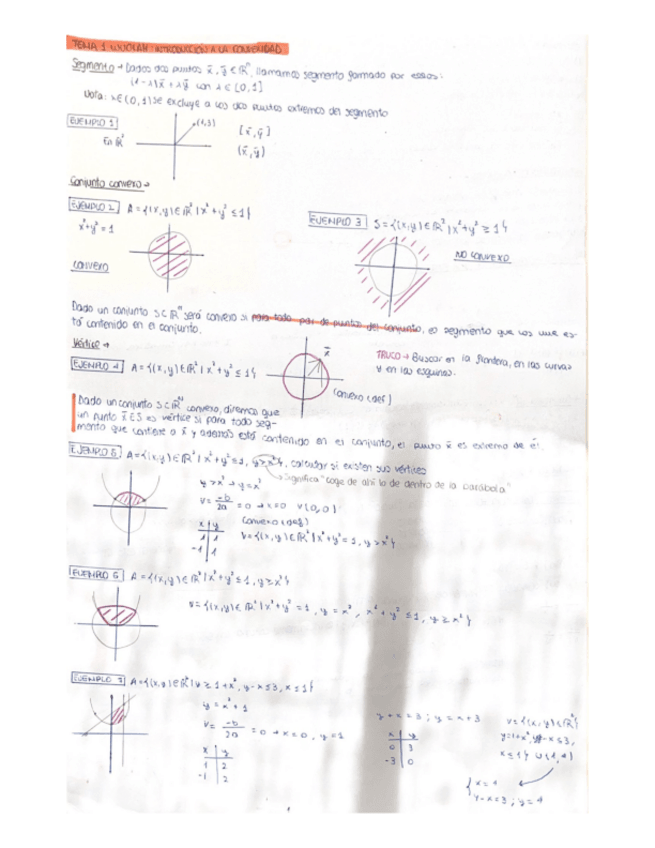 TEMA 1 INTRODUCCIÓN A LA CONVEXIDAD
Segmento → Dados dos puntos x̄, ȳ ∈ ℝⁿ, llamamos segmento formado por ellos:
(1-λ)x̄ + λȳ con λ ∈ [0,1]
Nota: λ ∈ (0,1) se excluye a los dos puntos extremos del segmento
EJEMPLO 1
En ℝ²
[x̄, ȳ]
(x̄, ȳ)
Conjunto convexo →
EJEMPLO 2 A = {(x,y) ∈ ℝ² | x² + y² ≤ 1}
x² + y² = 1
convexo
EJEMPLO 3 S = {(x,y) ∈ ℝ² | x² + y² ≥ 1}
NO CONVEXO
Dado un conjunto S ⊂ ℝⁿ será convexo si para todo par de puntos del conjunto, el segmento que los une es-
tá contenido en el conjunto.
Vértice →
EJEMPLO 4 A = {(x,y) ∈ ℝ² | x² + y² ≤ 1}
x̄
convexo (def)
TRUCO → Buscar en la frontera, en las curvas
y en las esquinas.
Dado un conjunto S ⊂ ℝⁿ convexo, diremos que
un punto x̄ ∈ S es vértice si para todo seg-
mento que contiene a x̄ y además está contenido en el conjunto, el punto x̄ es extremo de él.
EJEMPLO 5 A = {(x,y) ∈ ℝ² | x² + y² ≤ 1, y > x²}, calcular si existen sus vértices
Significa "coge de ahí lo de dentro de la parábola"
y > x² → y = x²
V = -b/2a = 0 → x = 0 V(0,0)
x y
1 1
-1 1
convexo (def)
V = {(x,y) ∈ ℝ² | x² + y² = 1, y > x²}
EJEMPLO 6 A = {(x,y) ∈ ℝ² | x² + y² ≤ 1, y ≥ x²}
V = {(x,y) ∈ ℝ² | x² + y² = 1, y = x², x² + y² ≤ 1, y ≥ x²}
EJEMPLO 7 A = {(x,y) ∈ ℝ² | y ≥ 1 + x², y - x ≤ 3, x ≤ 1}
y = x² + 1
V = -b/2a = 0 → x = 0, y = 1
x y
1 2
-1 2
y = x + 3
x y
0 3
-3 0
V = {(x,y) ∈ ℝ² |
y = 1 + x², y - x ≤ 3,
x ≤ 1} ∪ (1,4)
{ x = 1
y - x = 3; y = 4